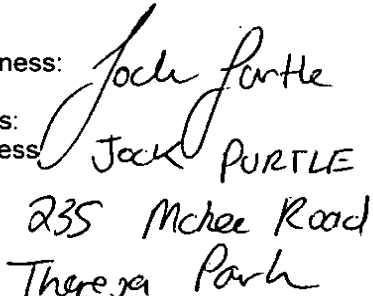 ness: Jock Purtle
s:
ess Jock PURTLE
235 Mckee Road
Theresa Park